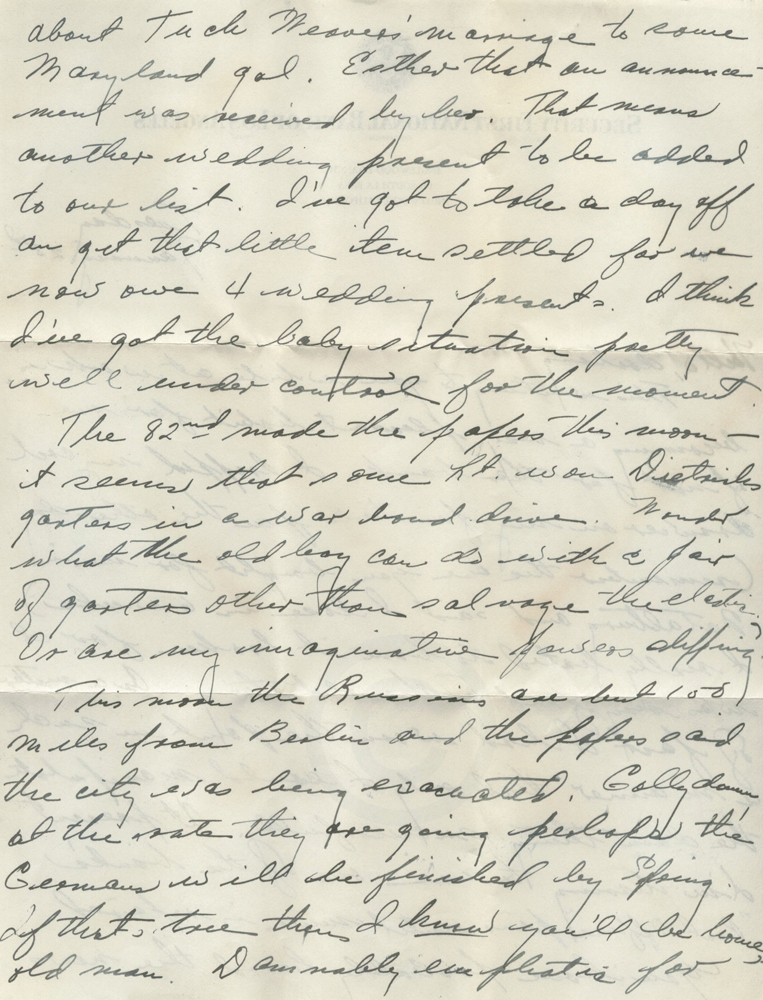 about Tuck Weavers' marriage to some
Maryland gal. Esther that an announce-
ment was received by her. That means
another wedding present to be added
to our list. I've got to take a day off
an get that little item settled for we
now owe 4 wedding presents. I think
I've got the baby situation pretty
well under control for the moment.
The 82nd made the papers this morn —
it seems that some Lt. won Dietrichs
garters in a war bond drive. Wonder
what the old boy can do with a pair
of garters other than salvage the elastic.
Or are my imaginative powers slipping
This morn the Russians are but 150
miles from Berlin and the papers said
the city was being evacuated. Golly damn
at the rate they are going perhaps the
Germans will be finished by Spring.
If that's true then I know you'll be home,
old man. Damnably emphatic for